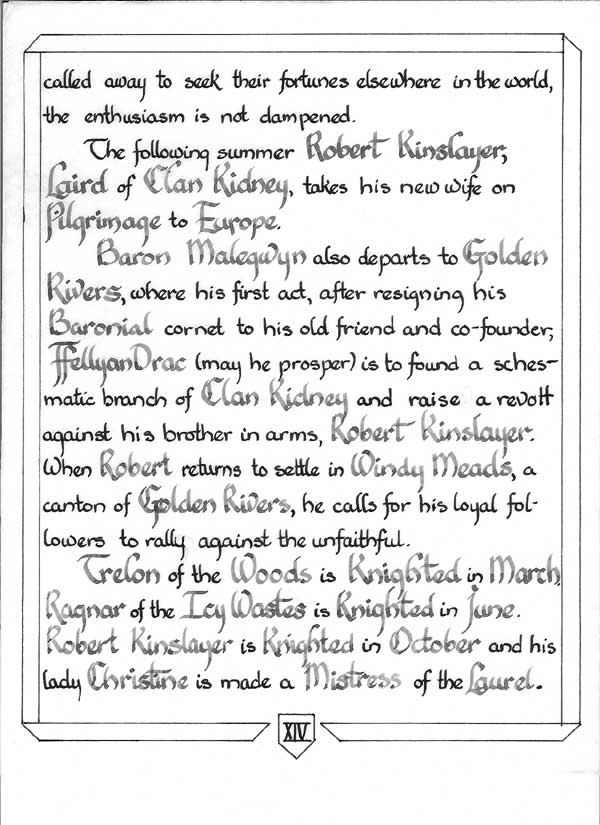 called away to seek their fortunes elsewhere in the world,
the enthusiasm is not dampened.
The following summer Robert Kinslayer,
Laird of Clan Kidney, takes his new wife on
Pilgrimage to Europe.
Baron Malegwyn also departs to Golden
Rivers, where his first act, after resigning his
Baronial cornet to his old friend and co-founder,
FfellyanDrac (may he prosper) is to found a sches-
matic branch of Clan Kidney and raise a revolt
against his brother in arms, Robert Kinslayer.
When Robert returns to settle in Windy Meads, a
canton of Golden Rivers, he calls for his loyal fol-
lowers to rally against the unfaithful.
Trelon of the Woods is Knighted in March,
Ragnar of the Icy Wastes is Knighted in June.
Robert Kinslayer is Knighted in October and his
lady Christine is made a Mistress of the Laurel.
XIV